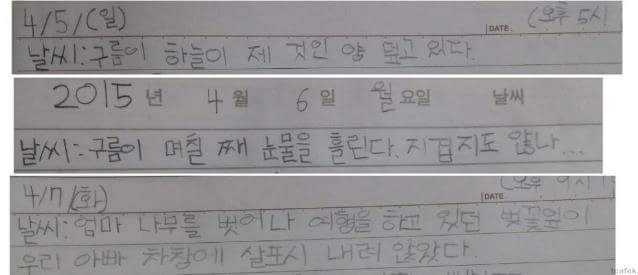 4/5/(일) DATE. (오후 5시
날씨:구름이 하늘이 제 것인 양 덮고 있다.
2015년 4월 6일 월요일 날씨
날씨:구름이 며칠 째 눈물을 흘린다. 지겹지도 않나...
4/7(화) DATE. (오후 9시
날씨:엄마 나무를 벗어나 여행을 하고 있던 벚꽃잎이
우리 아빠 차창에 살포시 내려 앉았다.